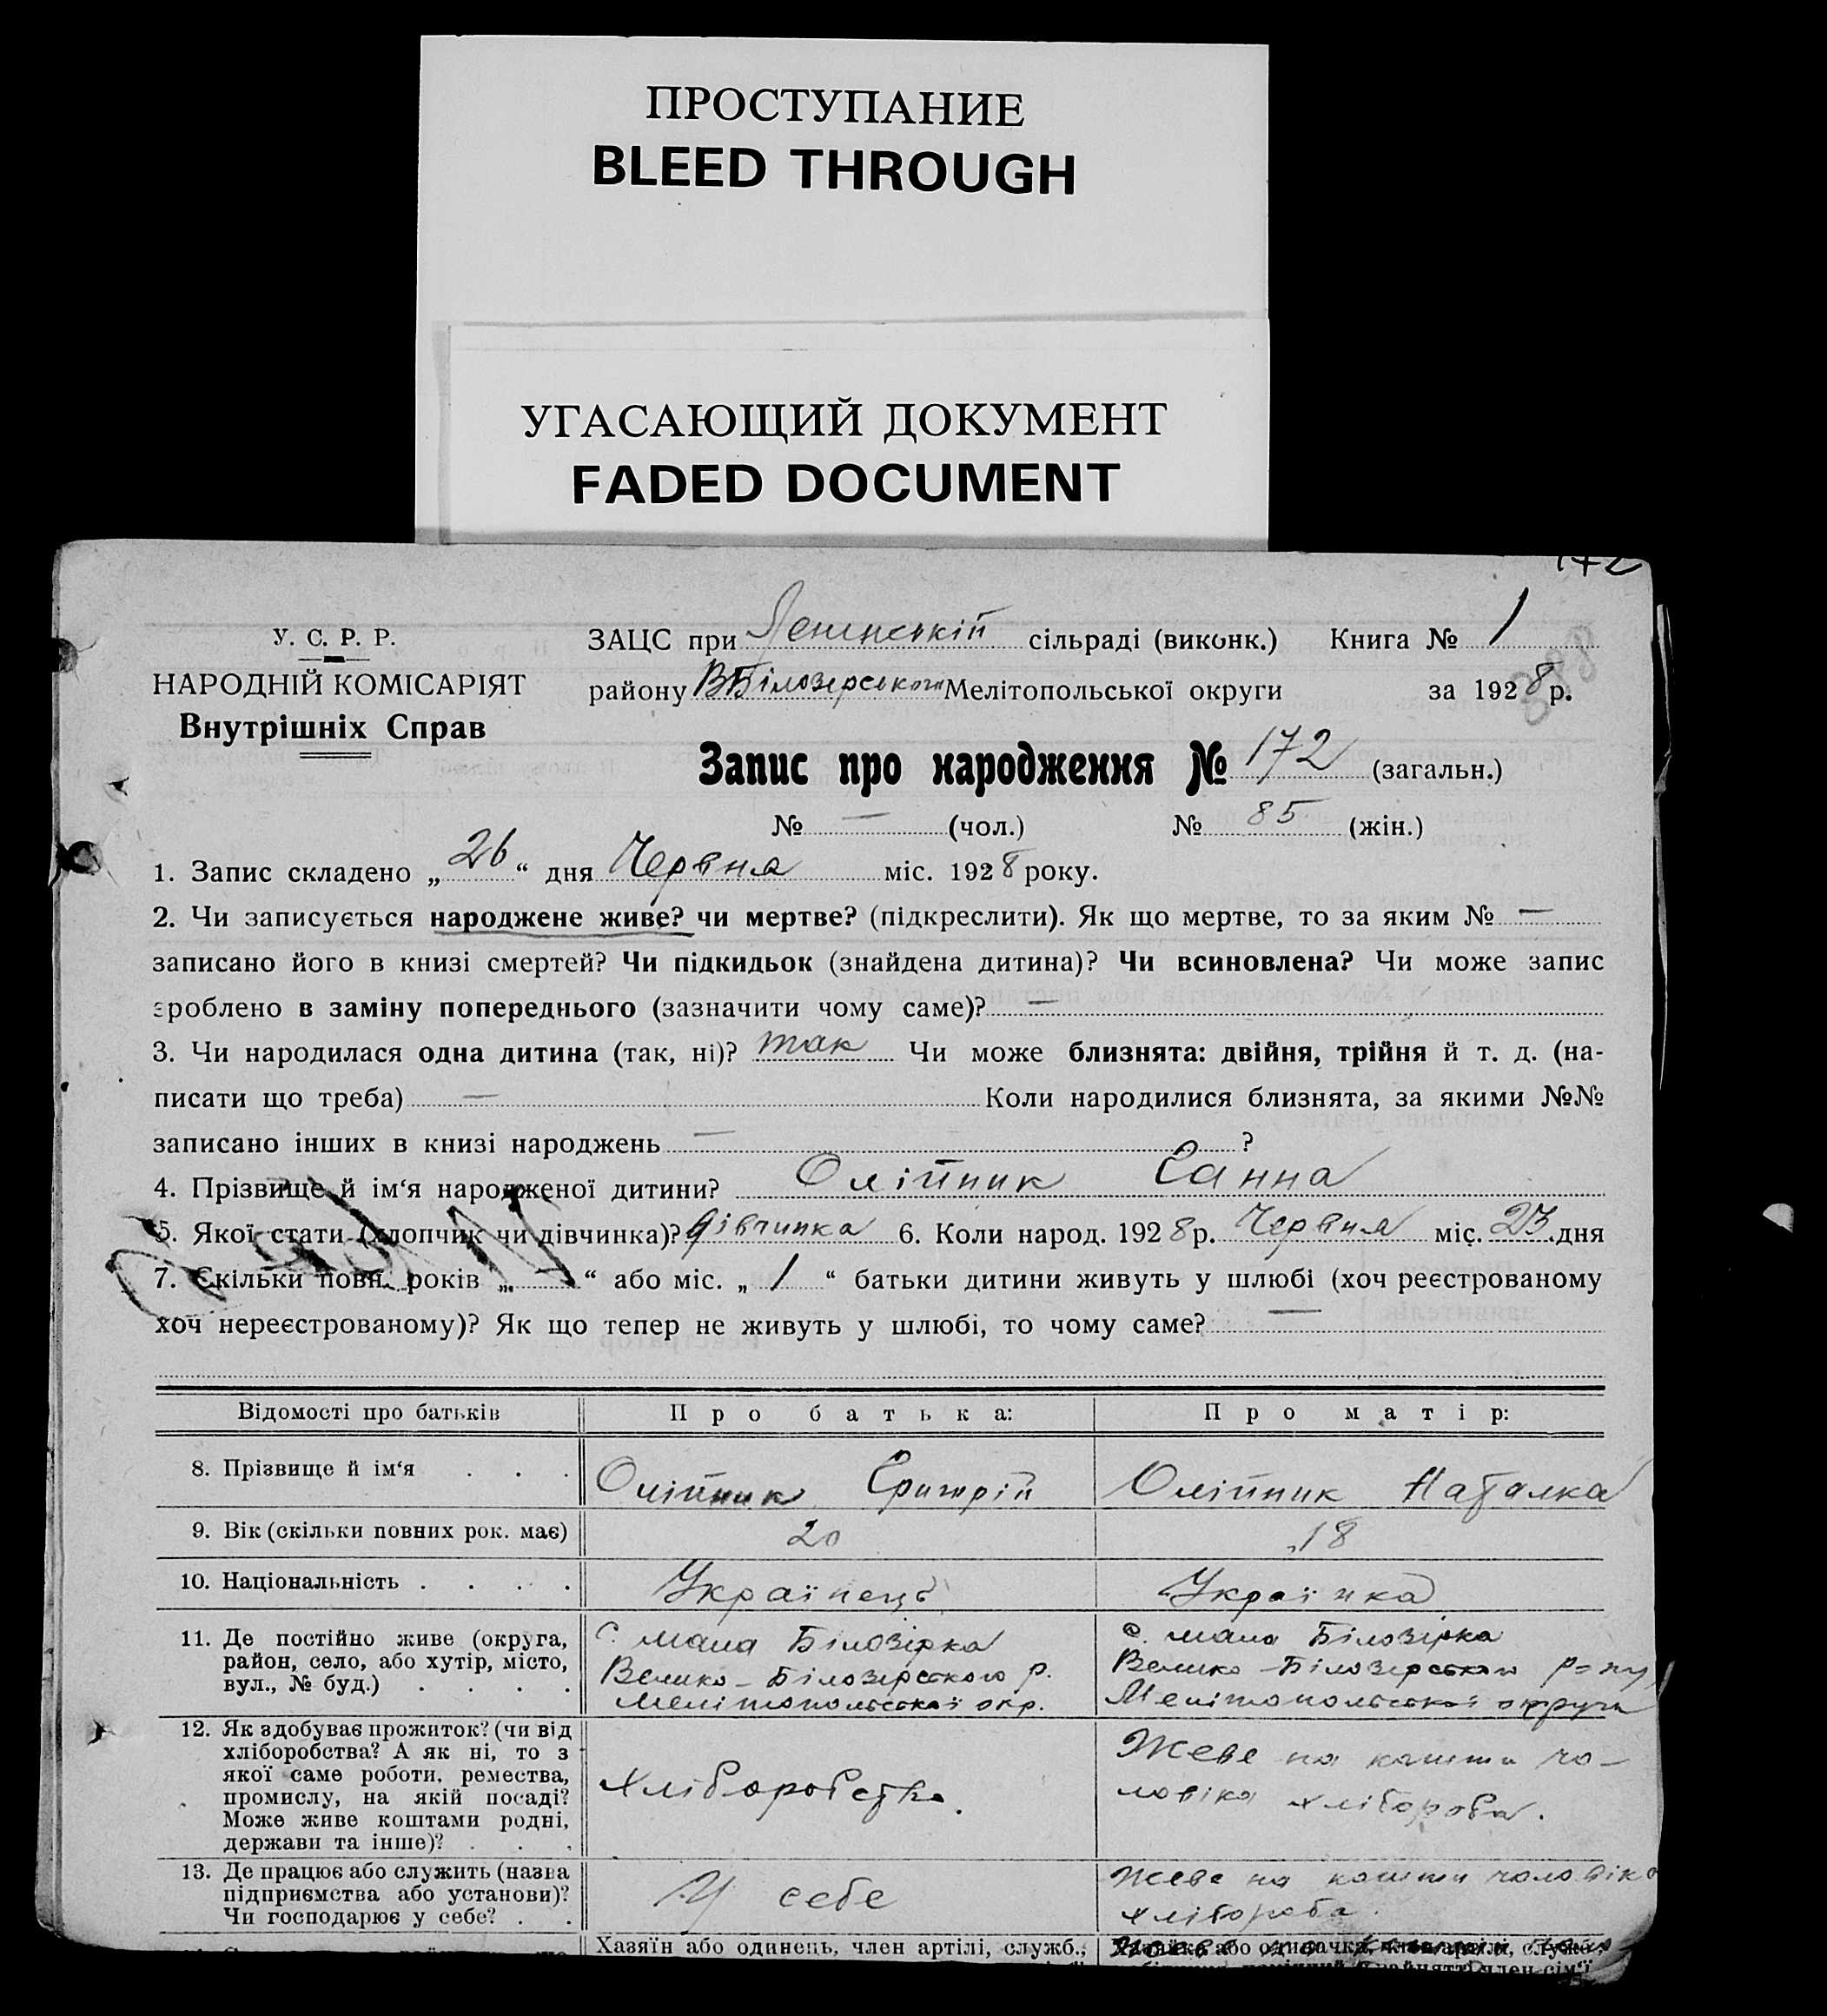 ПРОСТУПАНИЕ
BLEED THROUGH
УГАСАЮЩИЙ ДОКУМЕНТ
FADED DOCUMENT
172
У. С. Р. Р.
НАРОДНІЙ КОМІСАРІЯТ
Внутрішніх Справ
ЗАЦС при Ленінській сільраді (виконк.) Книга № 1
388
району ВБілозерського Мелітопольської округи за 1928 р.
Запис про народження № 172 (загальн.)
№ — (чол.) № 85 (жін.)
1. Запис складено „26“ дня Червня міс. 1928 року.
2. Чи записується народжене живе? чи мертве? (підкреслити). Як що мертве, то за яким № —
записано його в книзі смертей? Чи підкидьок (знайдена дитина)? Чи всиновлена? Чи може запис
зроблено в заміну попереднього (зазначити чому саме)? —
3. Чи народилася одна дитина (так, ні)? так Чи може близнята: двійня, трійня й т. д. (на-
писати що треба) — Коли народилися близнята, за якими №№
записано інших в книзі народжень — ?
4. Прізвище й ім‘я народженої дитини? Олійник Ганна
5. Якої стати (хлопчик чи дівчинка)? дівчинка 6. Коли народ. 1928 р. Червня міс. 23 дня
7. Скільки повн. років „—“ або міс. „1“ батьки дитини живуть у шлюбі (хоч реєстрованому
хоч нереєстрованому)? Як що тепер не живуть у шлюбі, то чому саме? —
Відомості про батьків
Про батька:
Про матір:
8. Прізвище й ім‘я . . .
Олійник Григорій
Олійник Наталка
9. Вік (скільки повних рок. має)
20
18
10. Національність . . . .
Українець
Українка
11. Де постійно живе (округа,
район, село, або хутір, місто,
вул., № буд.) . . . .
с. Мала Білозірка
Велико-Білозерського р.
Мелітопольської окр.
с. Мала Білозірка
Велико-Білозерського р-ну
Мелітопольської округи
12. Як здобуває прожиток? (чи від
хліборобства? А як ні, то з
якої саме роботи, ремества,
промислу, на якій посаді?
Може живе коштами родні,
держави та інше)? . . .
Хліборобство.
Жеве на кошти чо-
ловіка хлібороба.
13. Де працює або служить (назва
підприємства або установи)?
Чи господарює у себе? . .
У себе
Жеве на кошти чоловіка
хлібороба.
Хазяїн або одинець, член артілі, служб.,
Хазяйка або одиначка, член артілі, служб.,
член сім‘ї